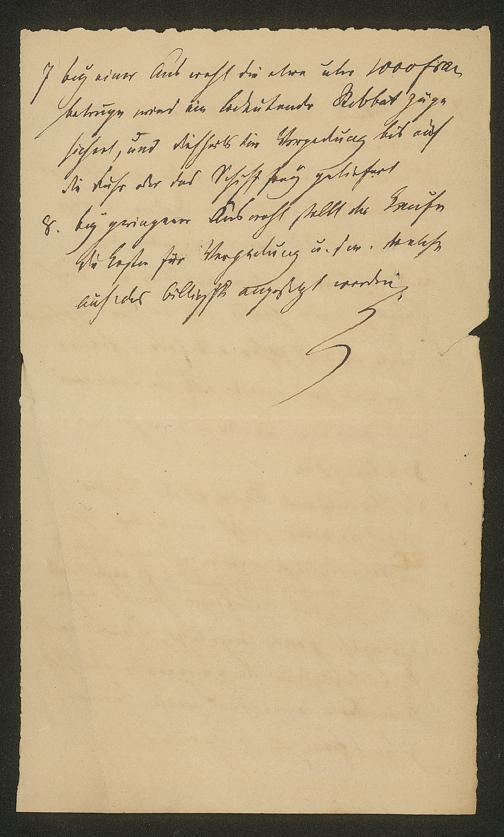 7 bey einer Auswahl die etwa über 1000 fran
betruge wird ein bedeutender Rabbat zuge
sichert, und dießseits die Verpackung bis auf
die Fuhr oder das Schiff frey geliefert
8. bey geringerer Auswahl stellt der Kaufer
die Kosten für Verpackung u. s. w. welche
auf das billigste angesetzt werden.